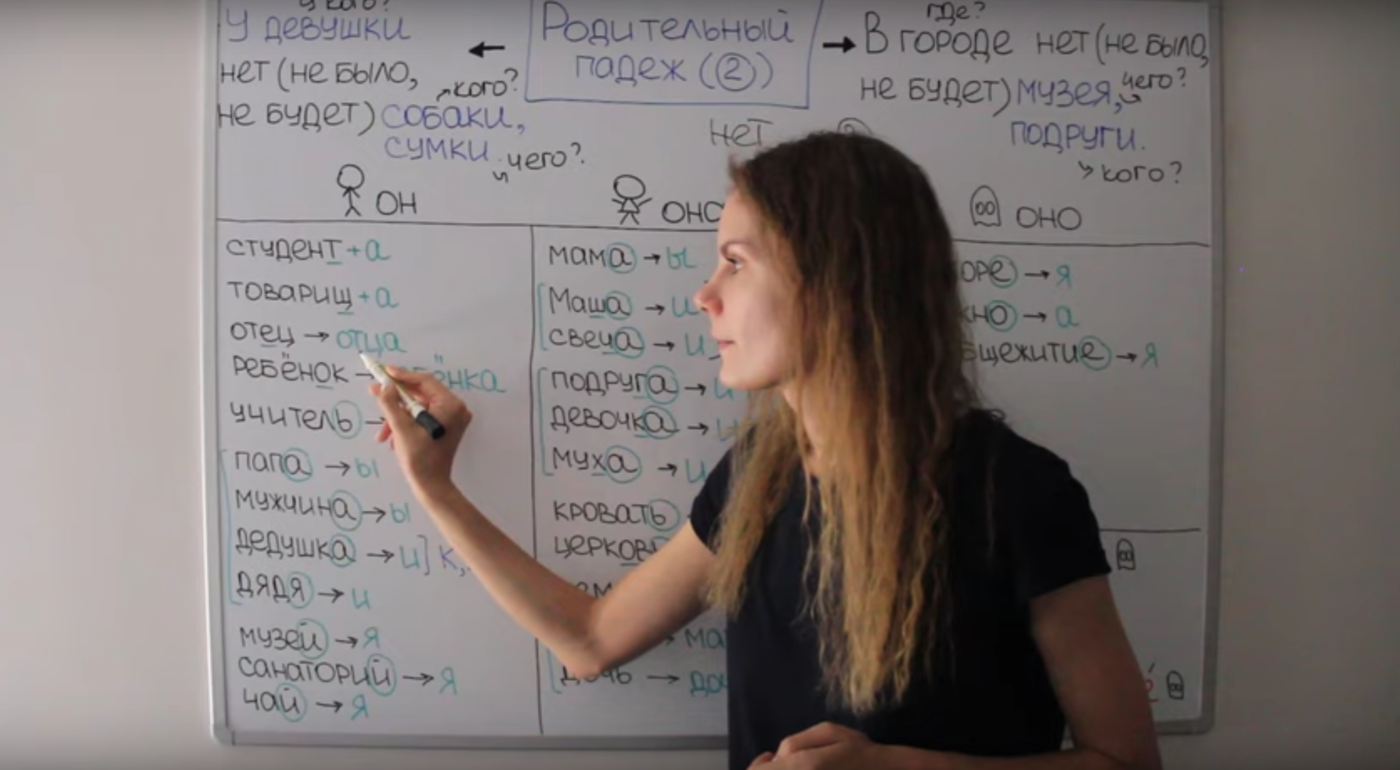 У ДЕВУШКИ
НЕТ (НЕ БЫЛО,
НЕ БУДЕТ) СОБАКИ,
кого?
СУМКИ.
чего?
РОДИТЕЛЬНЫЙ
ПАДЕЖ (②)
где?
В ГОРОДЕ НЕТ (НЕ БЫЛО,
НЕ БУДЕТ) МУЗЕЯ,
чего?
ПОДРУГИ.
кого?
НЕТ
ОН
СТУДЕНТ + а
ТОВАРИЩ + а
ОТЕЦ → ОТЦа
РЕБЁНОК →
УЧИТЕЛЬ →
ПАПА → Ы
МУЖЧИНА → Ы
ДЕДУШКА → И] К,
ДЯДЯ → И
МУЗЕЙ → Я
САНАТОРИЙ → Я
ЧАЙ → Я
МАМА → Ы
МАША → И
СВЕЧА → И
ПОДРУГА → И
ДЕВОЧКА → И
МУХА → И
КРОВАТЬ
ДОЧЬ →
ОНО
→ Я
→ а
→ Я